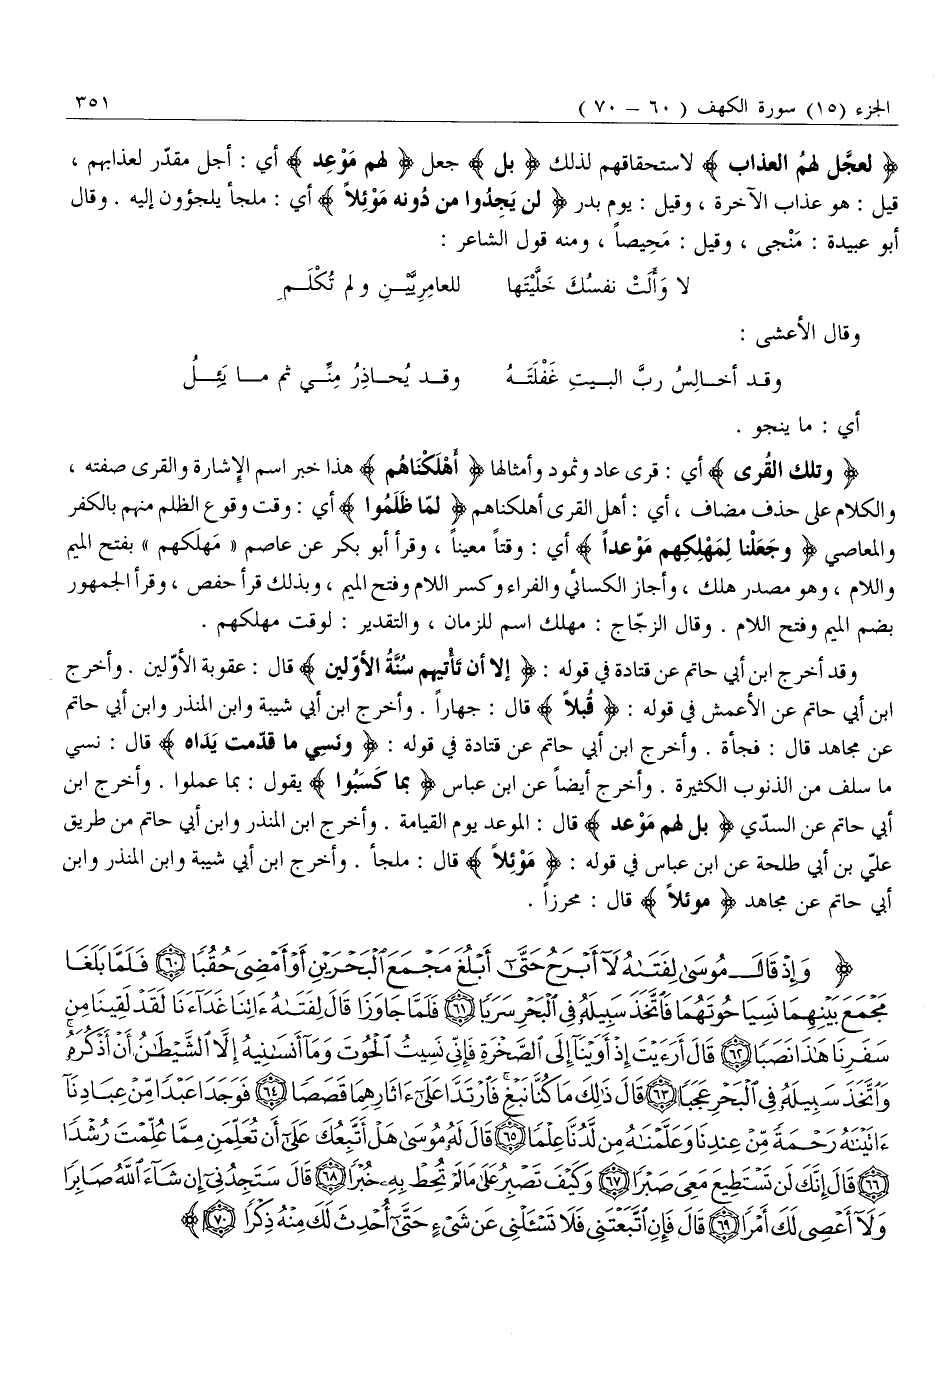 الجزء (١٥) سورة الكهف ( ٦٠ – ٧٠ )
٣٥١
﴿ لعجَّل لهمُ العذاب ﴾ لاستحقاقهم لذلك ﴿ بل ﴾ جعل ﴿ لهم مَوْعِد ﴾ أي : أجل مقدّر لعذابهم ،
قيل : هو عذاب الآخرة ، وقيل : يوم بدر ﴿ لن يَجِدُوا من دُونه مَوْئِلاً ﴾ أي : ملجأ يلجؤون إليه . وقال
أبو عبيدة : مَنْجى ، وقيل : مَحِيصاً ، ومنه قول الشاعر :
لا وَأَلَتْ نفسُكَ خَلَّيْتَها للعامِريَّيْـنِ و لم تُكْلَـمِ
وقال الأعشى :
وقـد أخـالِسُ ربَّ البـيتِ غَفْلَتَـهُ وقـد يُحـاذِرُ مِنِّـي ثم مـا يَئِـلُ
أي : ما ينجو .
﴿ وتلك القُرى ﴾ أي : قرى عاد وثمود وأمثالها ﴿ أَهْلَكْنَاهُم ﴾ هذا خبر اسم الإشارة والقرى صفته ،
والكلام على حذف مضاف ، أي : أهل القرى أهلكناهم ﴿ لمّا ظَلَمُوا ﴾ أي : وقت وقوع الظلم منهم بالكفر
والمعاصي ﴿ وجَعَلْنا لِمَهْلِكِهم مَوْعداً ﴾ أي : وقتاً معيناً ، وقرأ أبو بكر عن عاصم « مَهلَكهم » بفتح الميم
واللام ، وهو مصدر هلك ، وأجاز الكسائي والفراء وكسر اللام وفتح الميم ، وبذلك قرأ حفص ، وقرأ الجمهور
بضم الميم وفتح اللام . وقال الزجّاج : مهلك اسم للزمان ، والتقدير : لوقت مهلكهم .
وقد أخرج ابن أبي حاتم عن قتادة في قوله : ﴿ إلا أن تَأْتيهم سُنَّةُ الأوّلين ﴾ قال : عقوبة الأوّلين . وأخرج
ابن أبي حاتم عن الأعمش في قوله : ﴿ قُبلاً ﴾ قال : جهاراً . وأخرج ابن أبي شيبة وابن المنذر وابن أبي حاتم
عن مجاهد قال : فجأة . وأخرج ابن أبي حاتم عن قتادة في قوله : ﴿ ونَسي ما قدّمت يَدَاه ﴾ قال : نسي
ما سلف من الذنوب الكثيرة . وأخرج أيضاً عن ابن عباس ﴿ بما كَسَبُوا ﴾ يقول : بما عملوا . وأخرج ابن
أبي حاتم عن السدّي ﴿ بل لهم مَوْعد ﴾ قال : الموعد يوم القيامة . وأخرج ابن المنذر وابن أبي حاتم من طريق
عليّ بن أبي طلحة عن ابن عباس في قوله : ﴿ مَوْئِلاً ﴾ قال : ملجأ . وأخرج ابن أبي شيبة وابن المنذر وابن
أبي حاتم عن مجاهد ﴿ موئلاً ﴾ قال : محرزاً .
﴿ وَإِذۡ قَالَ مُوسَىٰ لِفَتَىٰهُ لَآ أَبۡرَحُ حَتَّىٰٓ أَبۡلُغَ مَجۡمَعَ ٱلۡبَحۡرَيۡنِ أَوۡ أَمۡضِيَ حُقُبٗا ٦٠ فَلَمَّا بَلَغَا
مَجۡمَعَ بَيۡنِهِمَا نَسِيَا حُوتَهُمَا فَٱتَّخَذَ سَبِيلَهُۥ فِي ٱلۡبَحۡرِ سَرَبٗا ٦١ فَلَمَّا جَاوَزَا قَالَ لِفَتَىٰهُ ءَاتِنَا غَدَآءَنَا لَقَدۡ لَقِينَا مِن
سَفَرِنَا هَٰذَا نَصَبٗا ٦٢ قَالَ أَرَءَيۡتَ إِذۡ أَوَيۡنَآ إِلَى ٱلصَّخۡرَةِ فَإِنِّي نَسِيتُ ٱلۡحُوتَ وَمَآ أَنسَىٰنِيهُ إِلَّا ٱلشَّيۡطَٰنُ أَنۡ أَذۡكُرَهُۥۚ
وَٱتَّخَذَ سَبِيلَهُۥ فِي ٱلۡبَحۡرِ عَجَبٗا ٦٣ قَالَ ذَٰلِكَ مَا كُنَّا نَبۡغِۚ فَٱرۡتَدَّا عَلَىٰٓ ءَاثَارِهِمَا قَصَصٗا ٦٤ فَوَجَدَا عَبۡدٗا مِّنۡ عِبَادِنَآ
ءَاتَيۡنَٰهُ رَحۡمَةٗ مِّنۡ عِندِنَا وَعَلَّمۡنَٰهُ مِن لَّدُنَّا عِلۡمٗا ٦٥ قَالَ لَهُۥ مُوسَىٰ هَلۡ أَتَّبِعُكَ عَلَىٰٓ أَن تُعَلِّمَنِ مِمَّا عُلِّمۡتَ رُشۡدٗا
٦٦ قَالَ إِنَّكَ لَن تَسۡتَطِيعَ مَعِيَ صَبۡرٗا ٦٧ وَكَيۡفَ تَصۡبِرُ عَلَىٰ مَا لَمۡ تُحِطۡ بِهِۦ خُبۡرٗا ٦٨ قَالَ سَتَجِدُنِيٓ إِن شَآءَ ٱللَّهُ صَابِرٗا
وَلَآ أَعۡصِي لَكَ أَمۡرٗا ٦٩ قَالَ فَإِنِ ٱتَّبَعۡتَنِي فَلَا تَسۡـَٔلۡنِي عَن شَيۡءٍ حَتَّىٰٓ أُحۡدِثَ لَكَ مِنۡهُ ذِكۡرٗا ٧٠ ﴾